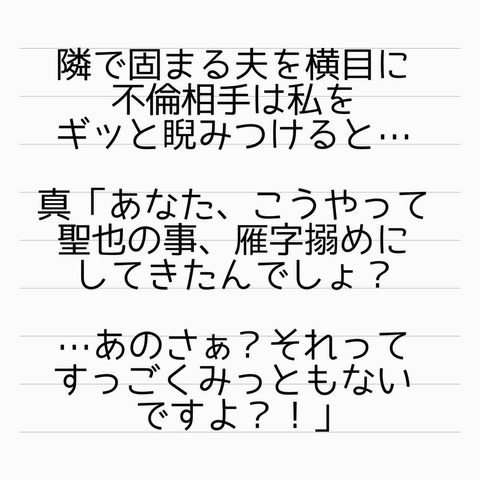 隣で固まる夫を横目に
不倫相手は私を
ギッと睨みつけると…
真「あなた、こうやって
聖也の事、雁字搦めに
してきたんでしょ？
…あのさぁ？それって
すっごくみっともない
ですよ？！」